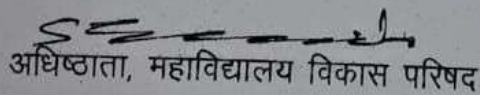 अधिष्ठाता, महाविद्यालय विकास परिषद